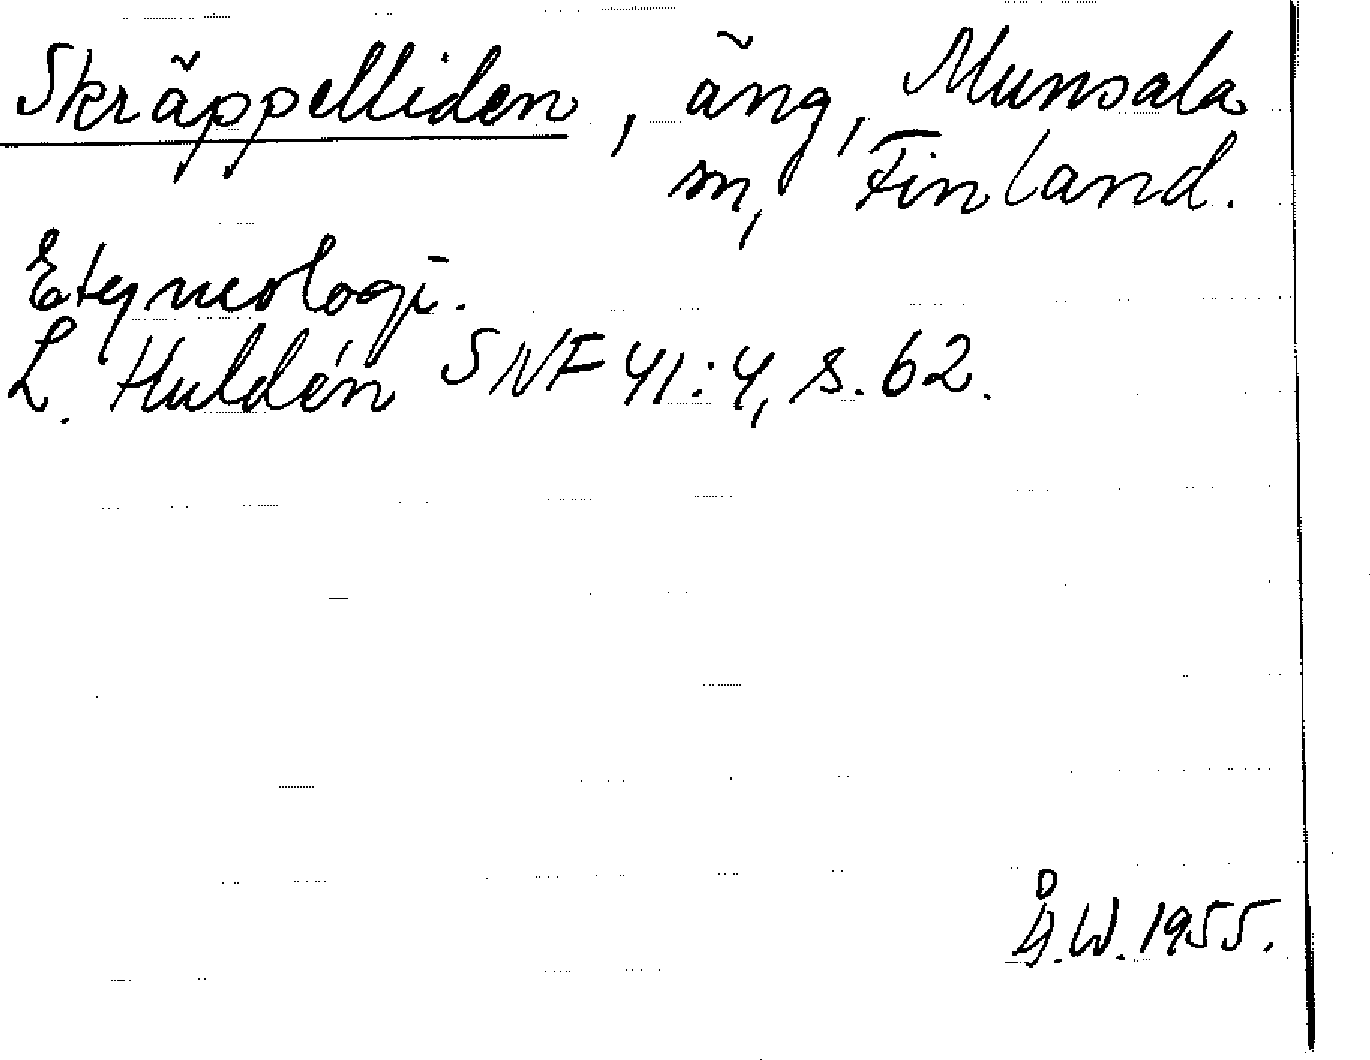 Skräppelliden, äng, Munsala
sn, Finland.
Etymologi.
L. Huldén SNF 41:4, s. 62.
Å.W. 1955.